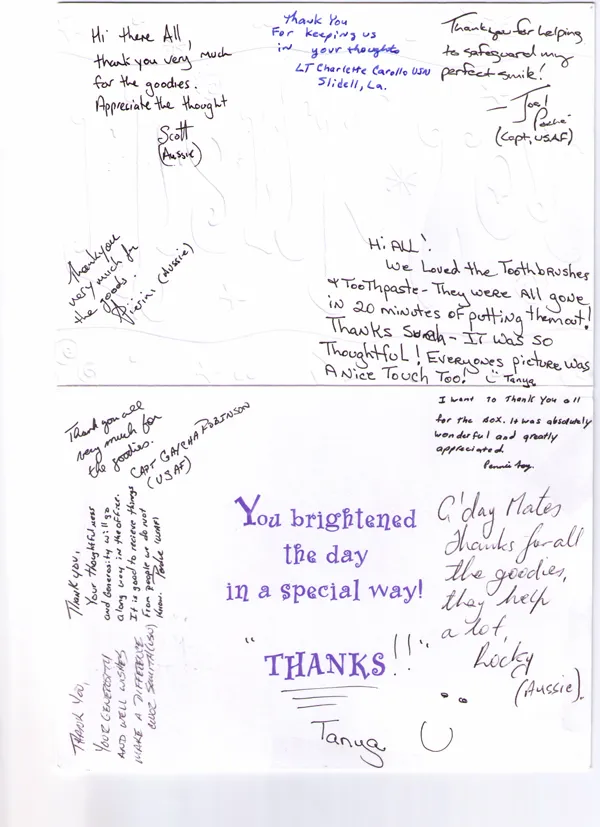 Hi there All,
thank you very much
for the goodies.
Appreciate the thought
Scott
(Aussie)
Thank You
For keeping us
in your thoughts
LT Charlette Carollo USN
Slidell, La.
Thank you for helping
to safeguard my
perfect smile!
— Joel
(Capt, USAF)
Thankyou
very much for
the goods.
(Aussie)
Hi ALL!
We Loved the Toothbrushes
& Toothpaste - They were All gone
in 20 minutes of putting them out!
Thanks Sarah - It was so
Thoughtful! Everyones picture was
A Nice Touch Too! Tanya
Thank you all
very much for
the goodies.
CAPT ROBINSON
(USAF)
I want to Thank You all
for the Box. It was absolutely
wonderful and greatly
appreciated.
Thank you,
Your thoughtfulness
and Generosity will go
along way in the office.
It is good to recieve things
from people we do not
know.
Thank You,
Your generosity
and well wishes
make a difference
You brightened
the day
in a special way!
"THANKS!!"
Tanya
G'day Mates
Thanks for all
the goodies,
they help
a lot,
Rocky
(Aussie).